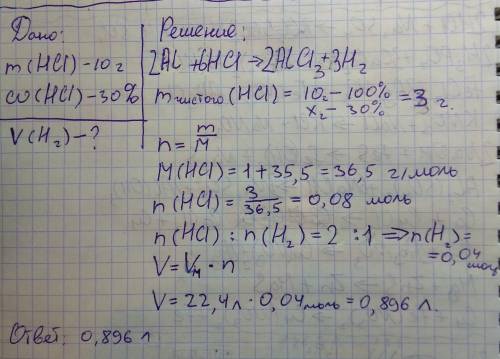 Дано:
m(HCl)-10г
ω(HCl)-30%
V(H₂)-?
Решение:
2Al+6HCl→2AlCl₃+3H₂
m чистого (HCl) = 10г-100% / x г-30% = 3 г.
n = m/M
M(HCl)=1+35,5=36,5 г/моль
n(HCl)= 3/36,5 = 0,08 моль
n(HCl):n(H₂)=2:1 ⇒ n(H₂)=
=0,04 моль
V=Vм·n
V=22,4л·0,04моль=0,896 л.
Ответ: 0,896 л